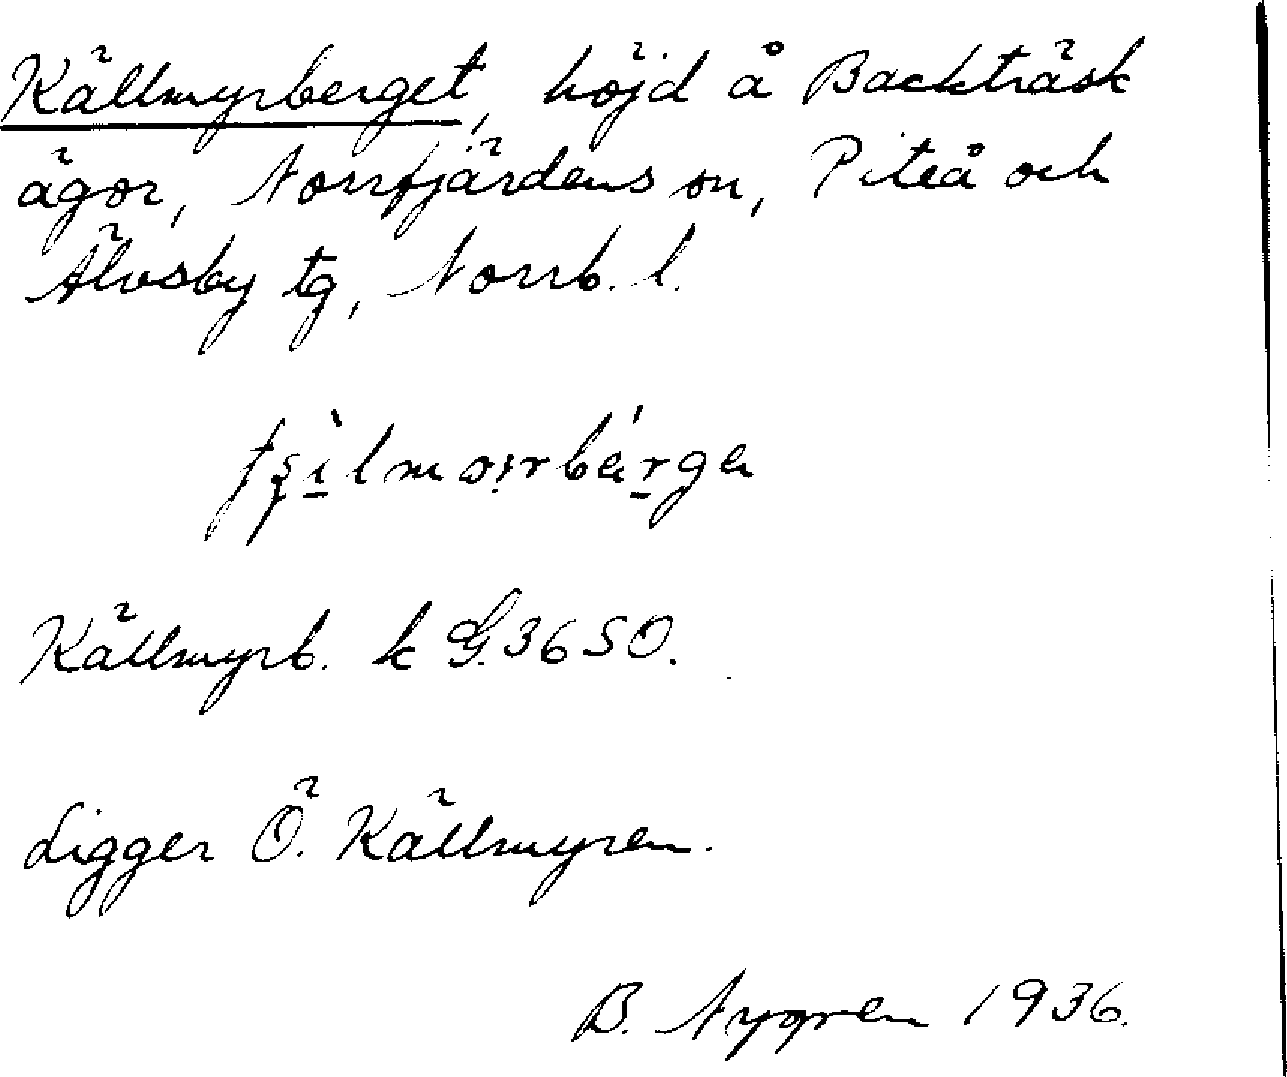 Källmyrberget, höjd å Backträsk
ägor, Norrfjärdens sn, Piteå och
Älvsby tg, Norrb. l.
Källmyrb. k G.3650.
Ligger Ö. Källmyren.
B. Nygren 1936.